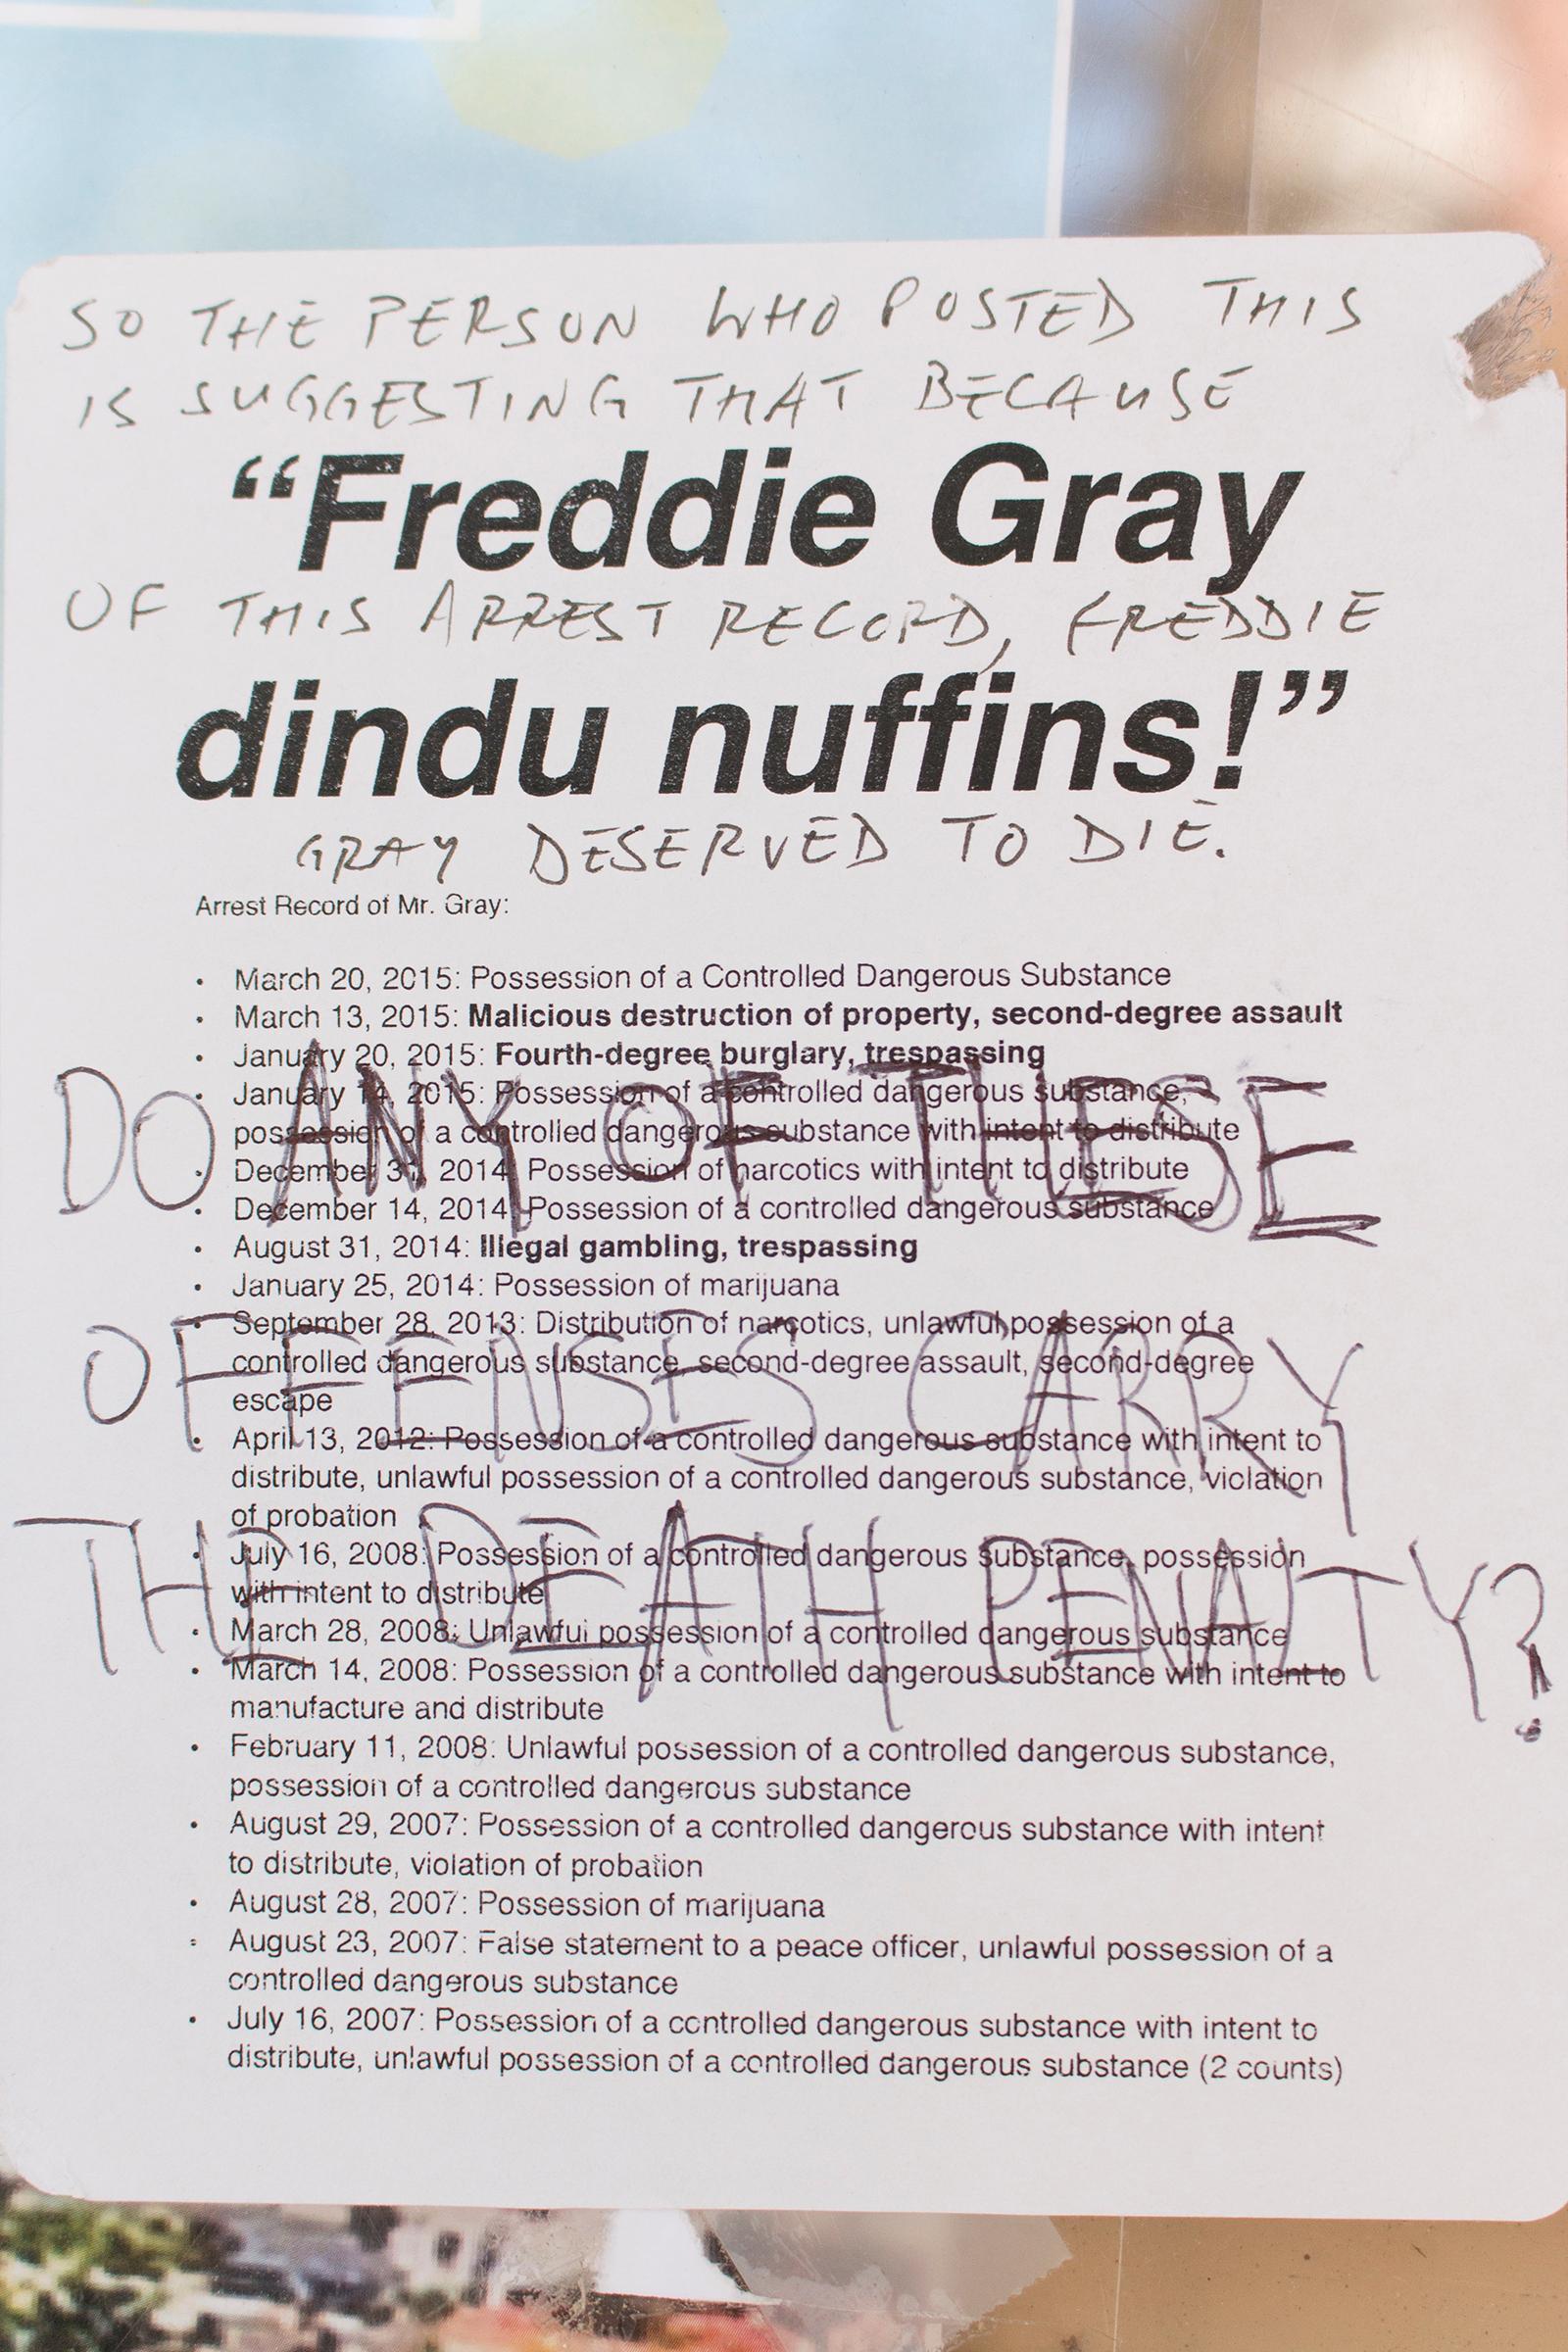 SO THE PERSON WHO POSTED THIS
IS SUGGESTING THAT BECAUSE
“Freddie Gray
OF THIS ARREST RECORD, FREDDIE
dindu nuffins!”
GRAY DESERVED TO DIE.
Arrest Record of Mr. Gray:
• March 20, 2015: Possession of a Controlled Dangerous Substance
• March 13, 2015: Malicious destruction of property, second-degree assault
• January 20, 2015: Fourth-degree burglary, trespassing
• January 14, 2015: Possession of a controlled dangerous substance,
possession of a controlled dangerous substance with intent to distribute
DO ANY OF THESE
• December 31, 2014: Possession of narcotics with intent to distribute
• December 14, 2014: Possession of a controlled dangerous substance
• August 31, 2014: Illegal gambling, trespassing
• January 25, 2014: Possession of marijuana
• September 28, 2013: Distribution of narcotics, unlawful possession of a
controlled dangerous substance, second-degree assault, second-degree
escape
OFFENSES CARRY
• April 13, 2012: Possession of a controlled dangerous substance with intent to
distribute, unlawful possession of a controlled dangerous substance, violation
of probation
• July 16, 2008: Possession of a controlled dangerous substance, possession
with intent to distribute
THE DEATH PENALTY?
• March 28, 2008: Unlawful possession of a controlled dangerous substance
• March 14, 2008: Possession of a controlled dangerous substance with intent to
manufacture and distribute
• February 11, 2008: Unlawful possession of a controlled dangerous substance,
possession of a controlled dangerous substance
• August 29, 2007: Possession of a controlled dangerous substance with intent
to distribute, violation of probation
• August 28, 2007: Possession of marijuana
• August 23, 2007: False statement to a peace officer, unlawful possession of a
controlled dangerous substance
• July 16, 2007: Possession of a controlled dangerous substance with intent to
distribute, unlawful possession of a controlled dangerous substance (2 counts)